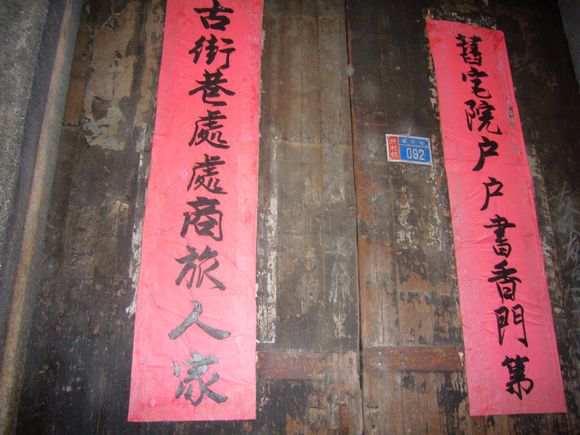 舊宅院户户書香門第
古街巷處處商旅人家
092